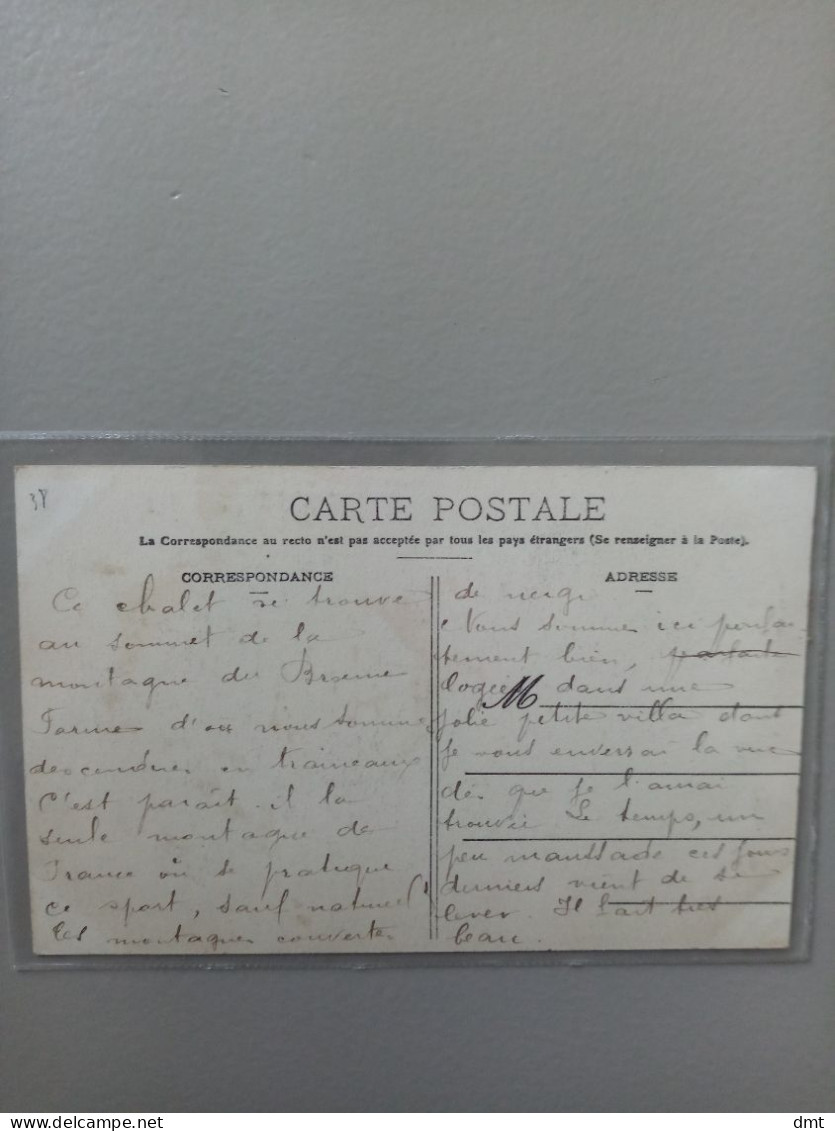 38
CARTE POSTALE
La Correspondance au recto n'est pas acceptée par tous les pays étrangers (Se renseigner à la Poste).
CORRESPONDANCE
Ce chalet se trouve
au sommet de la
montagne du
d'où nous sommes
en traineaux
C'est parait-il la
seule montagne de
France où se pratique
ce sport, sauf naturel
les montagnes couvertes
ADRESSE
de neige
Nous sommes ici
tement bien,
M
dans une
jolie petite villa dont
je vous enverrai la vue
dès que je l'aurai
trouvée. Le temps, un
peu maussade ces jours
derniers vient de se
lever. Il fait très
beau.
dmt